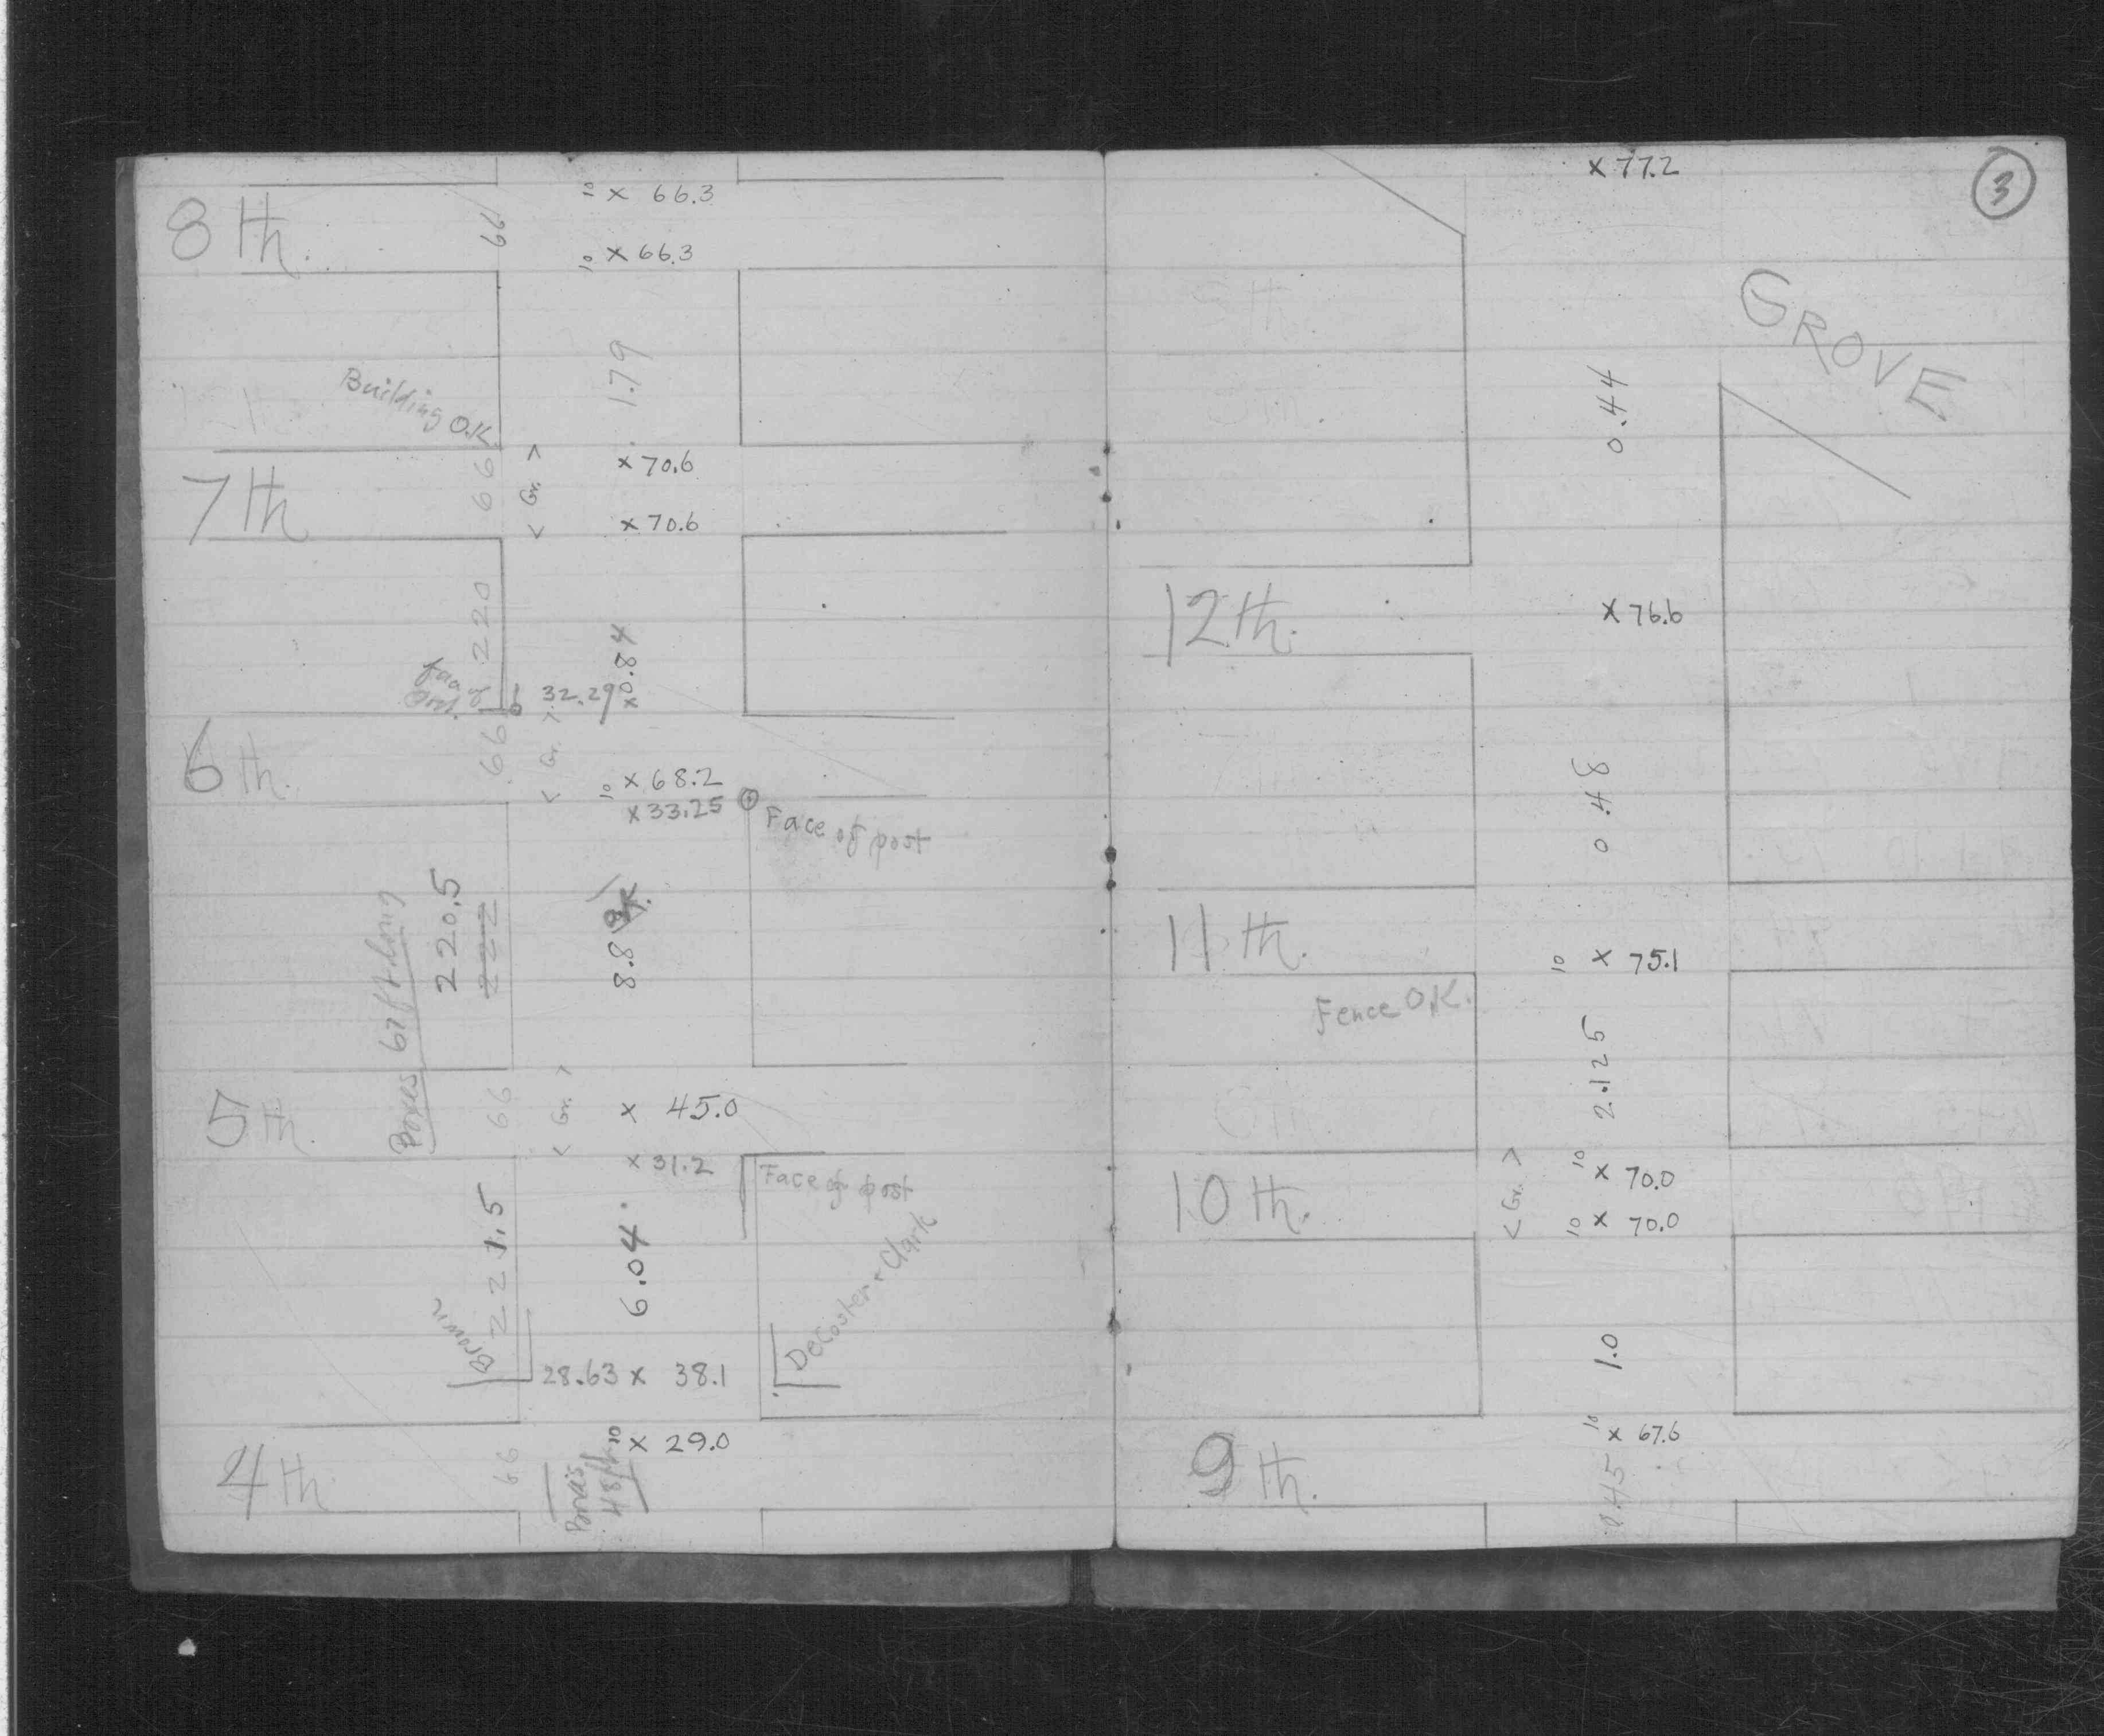 10 x 66.3
8th.
66
10 x 66.3
1.79
Building O.K.
66
< Gr. >
x 70.6
7th
x 70.6
220
x 0.84
32.29
66
< Gr. >
6th.
10 x 68.2
x 33.25
Face of post
220.5
222
Boxes 67 ft long
8.8
66
< Gr. >
x 45.0
5th.
x 31.2
Face of post
221.5
6.04
Brown
DeCoster + Clark
28.63 x 38.1
10 x 29.0
4th
66
Boxes
48 ft
x 77.2
3
GROVE
0.44
12th.
x 76.6
0.48
11th.
10 x 75.1
Fence O.K.
2.125
< Gr. >
10 x 70.0
10th.
10 x 70.0
1.0
10 x 67.6
9th.
0.45